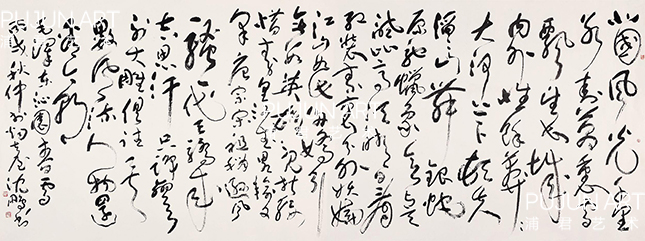 北國風光千里
冰封萬里雪
飄望長城
內外惟餘莽莽
大河上下頓失
滔滔山舞銀蛇
原馳蠟象欲與天
試比高須晴日看
紅裝素裹分外妖嬈
江山如此多嬌引
無數英雄競折腰
惜秦皇漢武略輸文
采唐宗宋祖稍遜風
騷一代天驕成
吉思汗只識彎弓
射大雕俱往矣
數風流人物還
看今朝
毛澤東沁園春雪
秋仲 沈鵬
PUJUN ART
浦君艺术